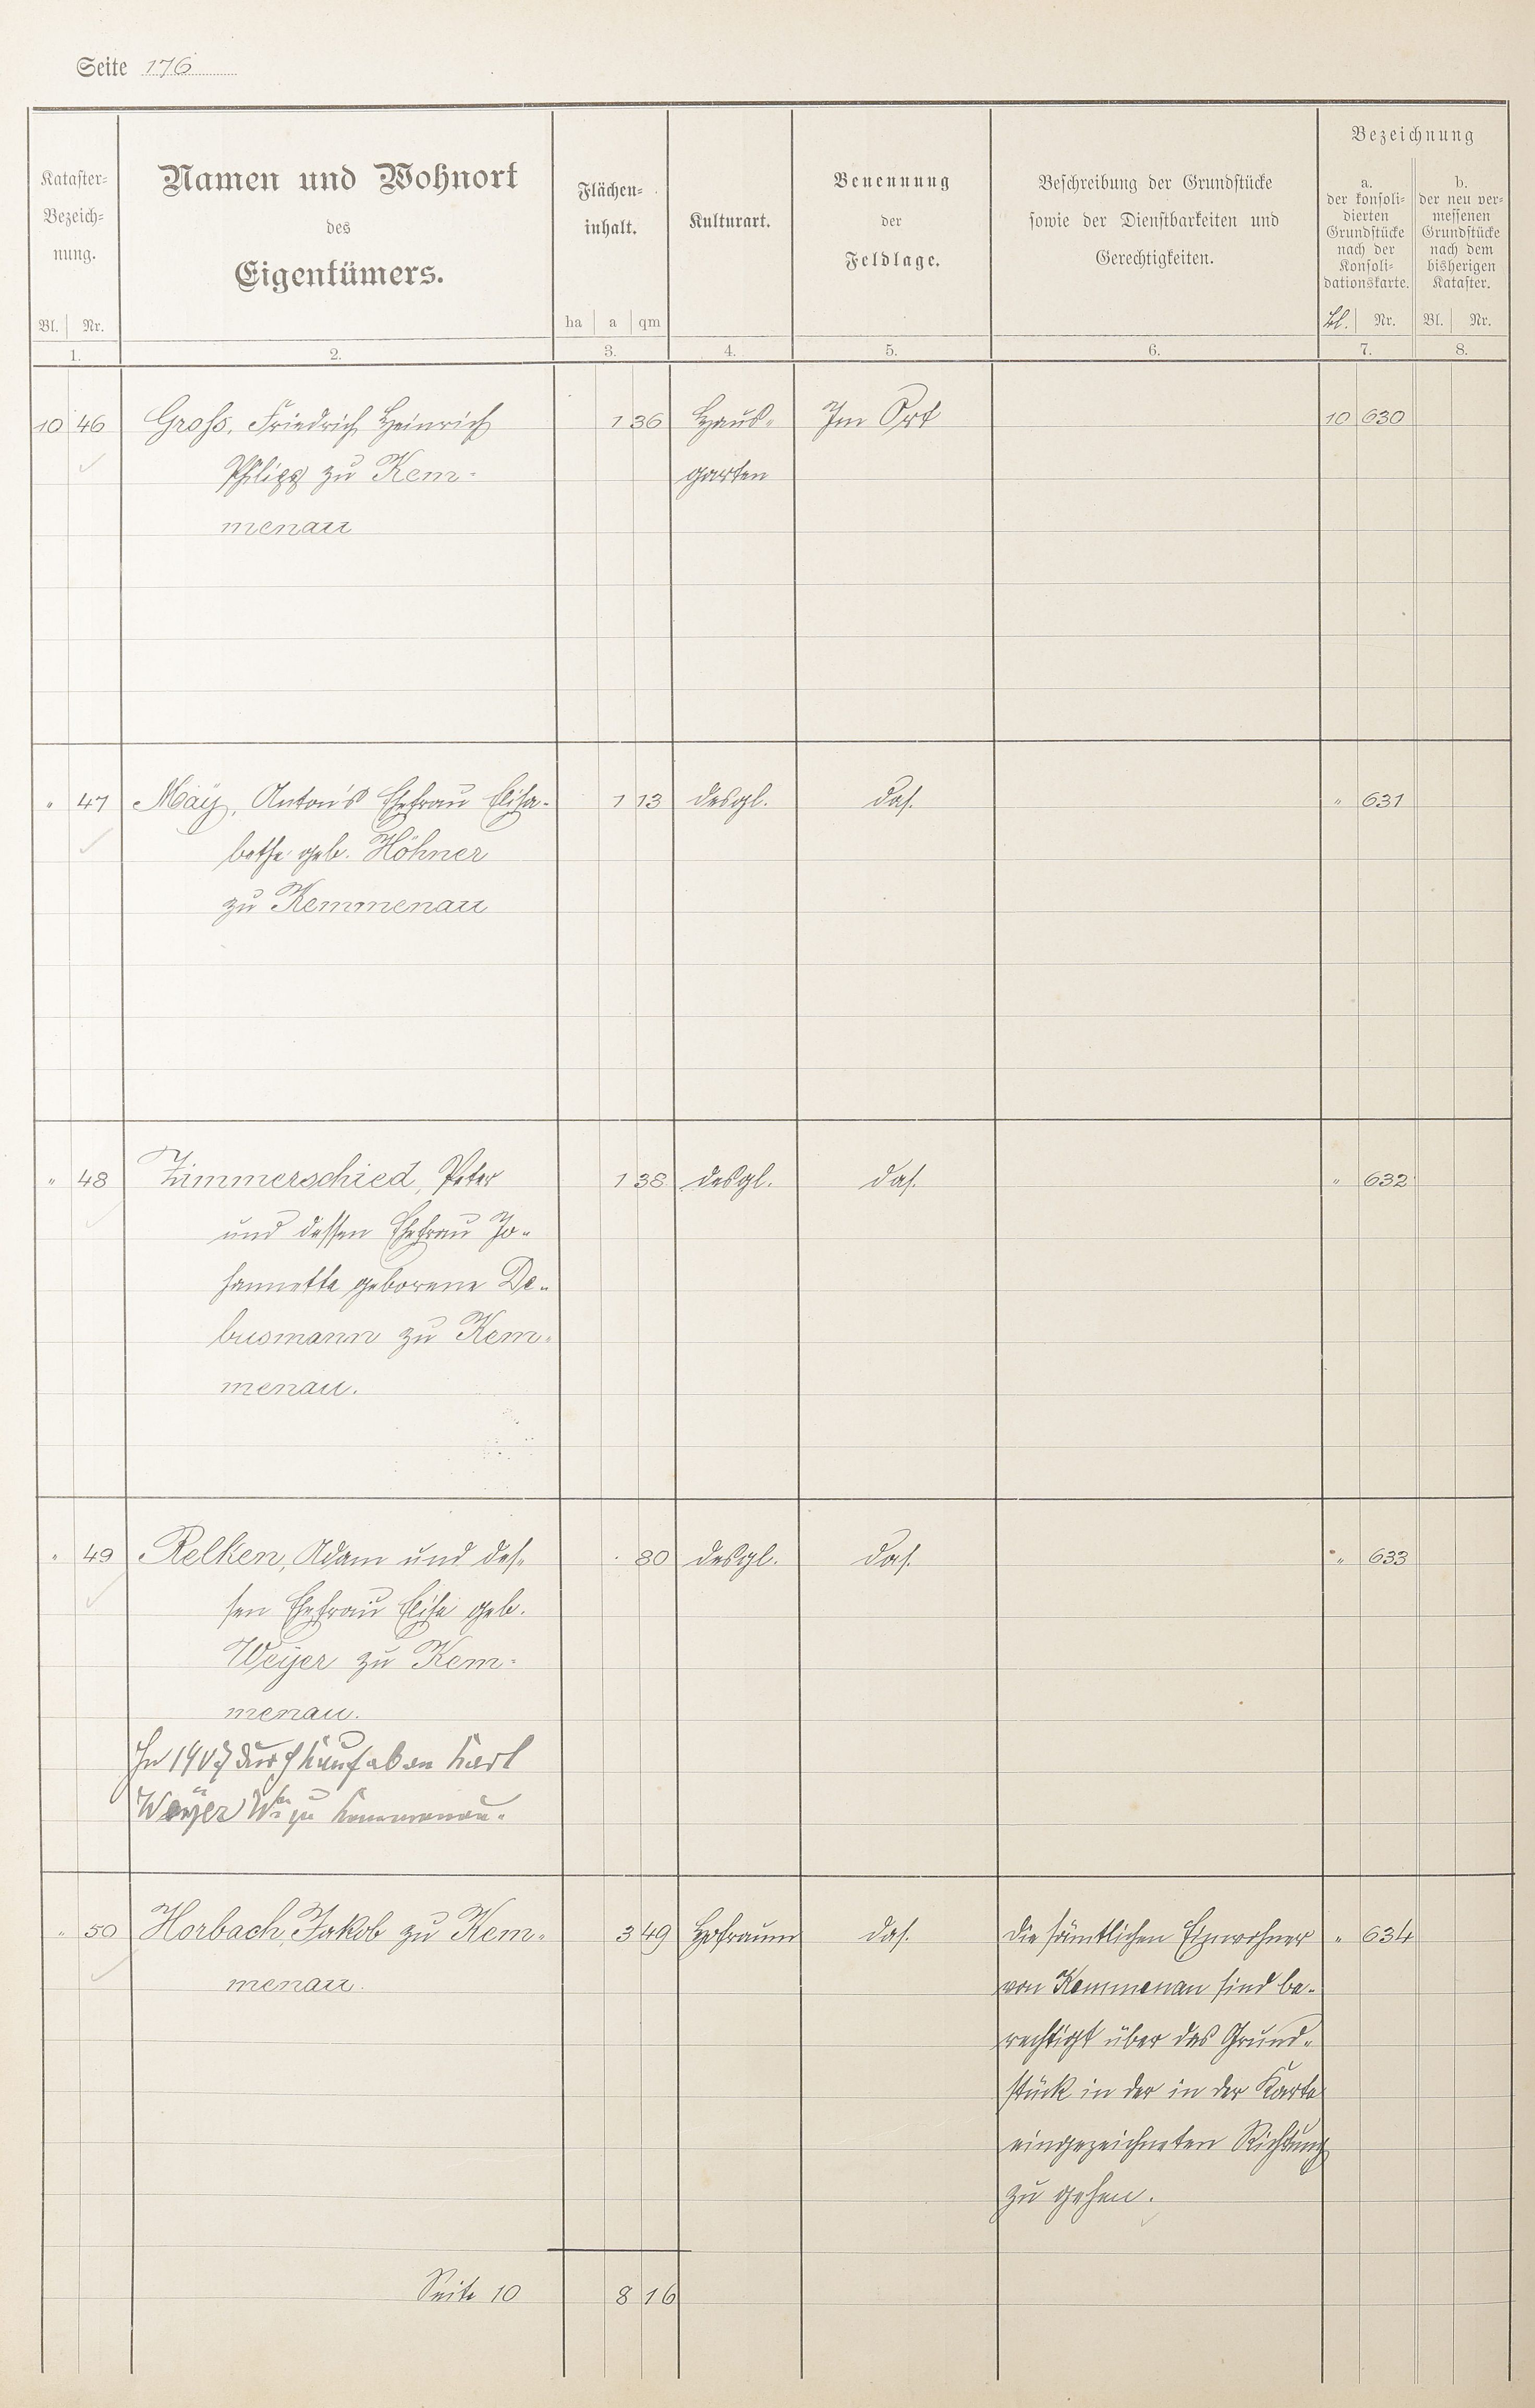 Seite 176
Kataster-
Bezeich-
nung.
Bl. Nr.
1.
Namen und Wohnort
des
Eigentümers.
2.
Flächen-
inhalt.
ha a qm
3.
Kulturart.
4.
Benennung
der
Feldlage.
5.
Beschreibung der Grundstücke
sowie der Dienstbarkeiten und
Gerechtigkeiten.
6.
Bezeichnung
a.
der konsoli-
dierten
Grundstücke
nach der
Konsoli-
dationskarte.
Bl. Nr.
7.
b.
der neu ver-
messenen
Grundstücke
nach dem
bisherigen
Kataster.
Bl. Nr.
8.
10 46 Groß, Friedrich Heinrich 1 36 Haus- Im Ort 10 630
Philipp zu Kem- garten
menau
" 47 Maÿ, Anton's Ehefrau Elisa- 1 13 desgl. das. " 631
bethe geb. Höhner
zu Kemmenau
" 48 Zimmerschied, Peter 1 38 desgl. das. " 632
und dessen Ehefrau Jo-
hannette geborene De-
busmann zu Kem-
menau.
" 49 Relken, Adam und des- . 80 desgl. das. " 633
sen Ehefrau Elise geb.
Weijer zu Kem-
menau.
In 1907 durch Kauf ab an Karl
Weijer zu Kemmenau.
" 50 Horbach, Jakob zu Kem- 3 49 Hofraum das. Die sämtlichen Einwohner " 634
menau. von Kemmenau sind be-
rechtigt über das Grund-
stück in der in der Karte
eingezeichneten Richtung
zu gehen.
Seite 10 8 16